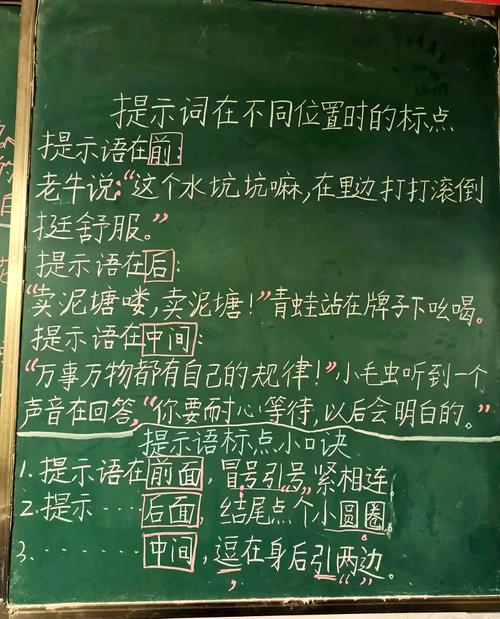 提示词在不同位置时的标点
提示语在前:
老牛说:“这个水坑坑嘛,在里边打打滚倒
挺舒服。”
提示语在后:
“卖泥塘喽,卖泥塘!”青蛙站在牌子下吆喝。
提示语在中间:
“万事万物都有自己的规律!”小毛虫听到一个
声音在回答,“你要耐心等待,以后会明白的。”
提示语标点小口诀
1.提示语在前面,冒号引号紧相连。
2.提示……后面,结尾点个小圆圈。
3.………中间,逗在身后引两边。
, “ ”